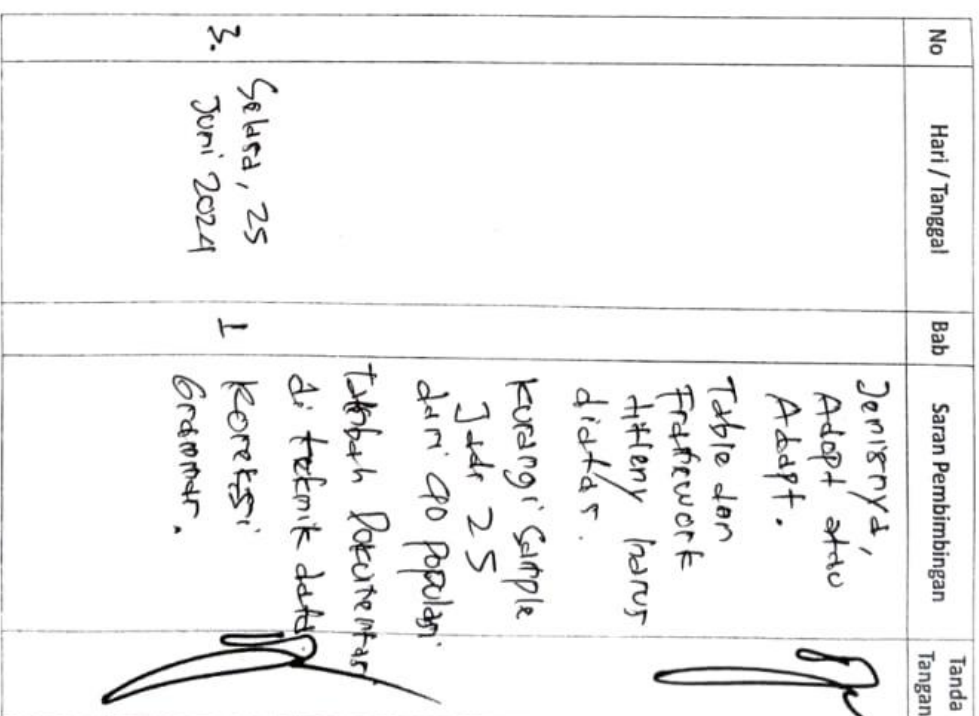 No
Hari / Tanggal
Bab
Saran Pembimbingan
Tanda
Tangan
Jenisnya,
Adopt atau
Adapt.
Table dan
Framework
titleny harus
diatas.
Kurangi Sample
Jadi 25
dari 90 populasi
tambah Dokumentasi
di teknik data
3.
Selasa, 25
Juni 2024
I
Koreksi
Grammar.